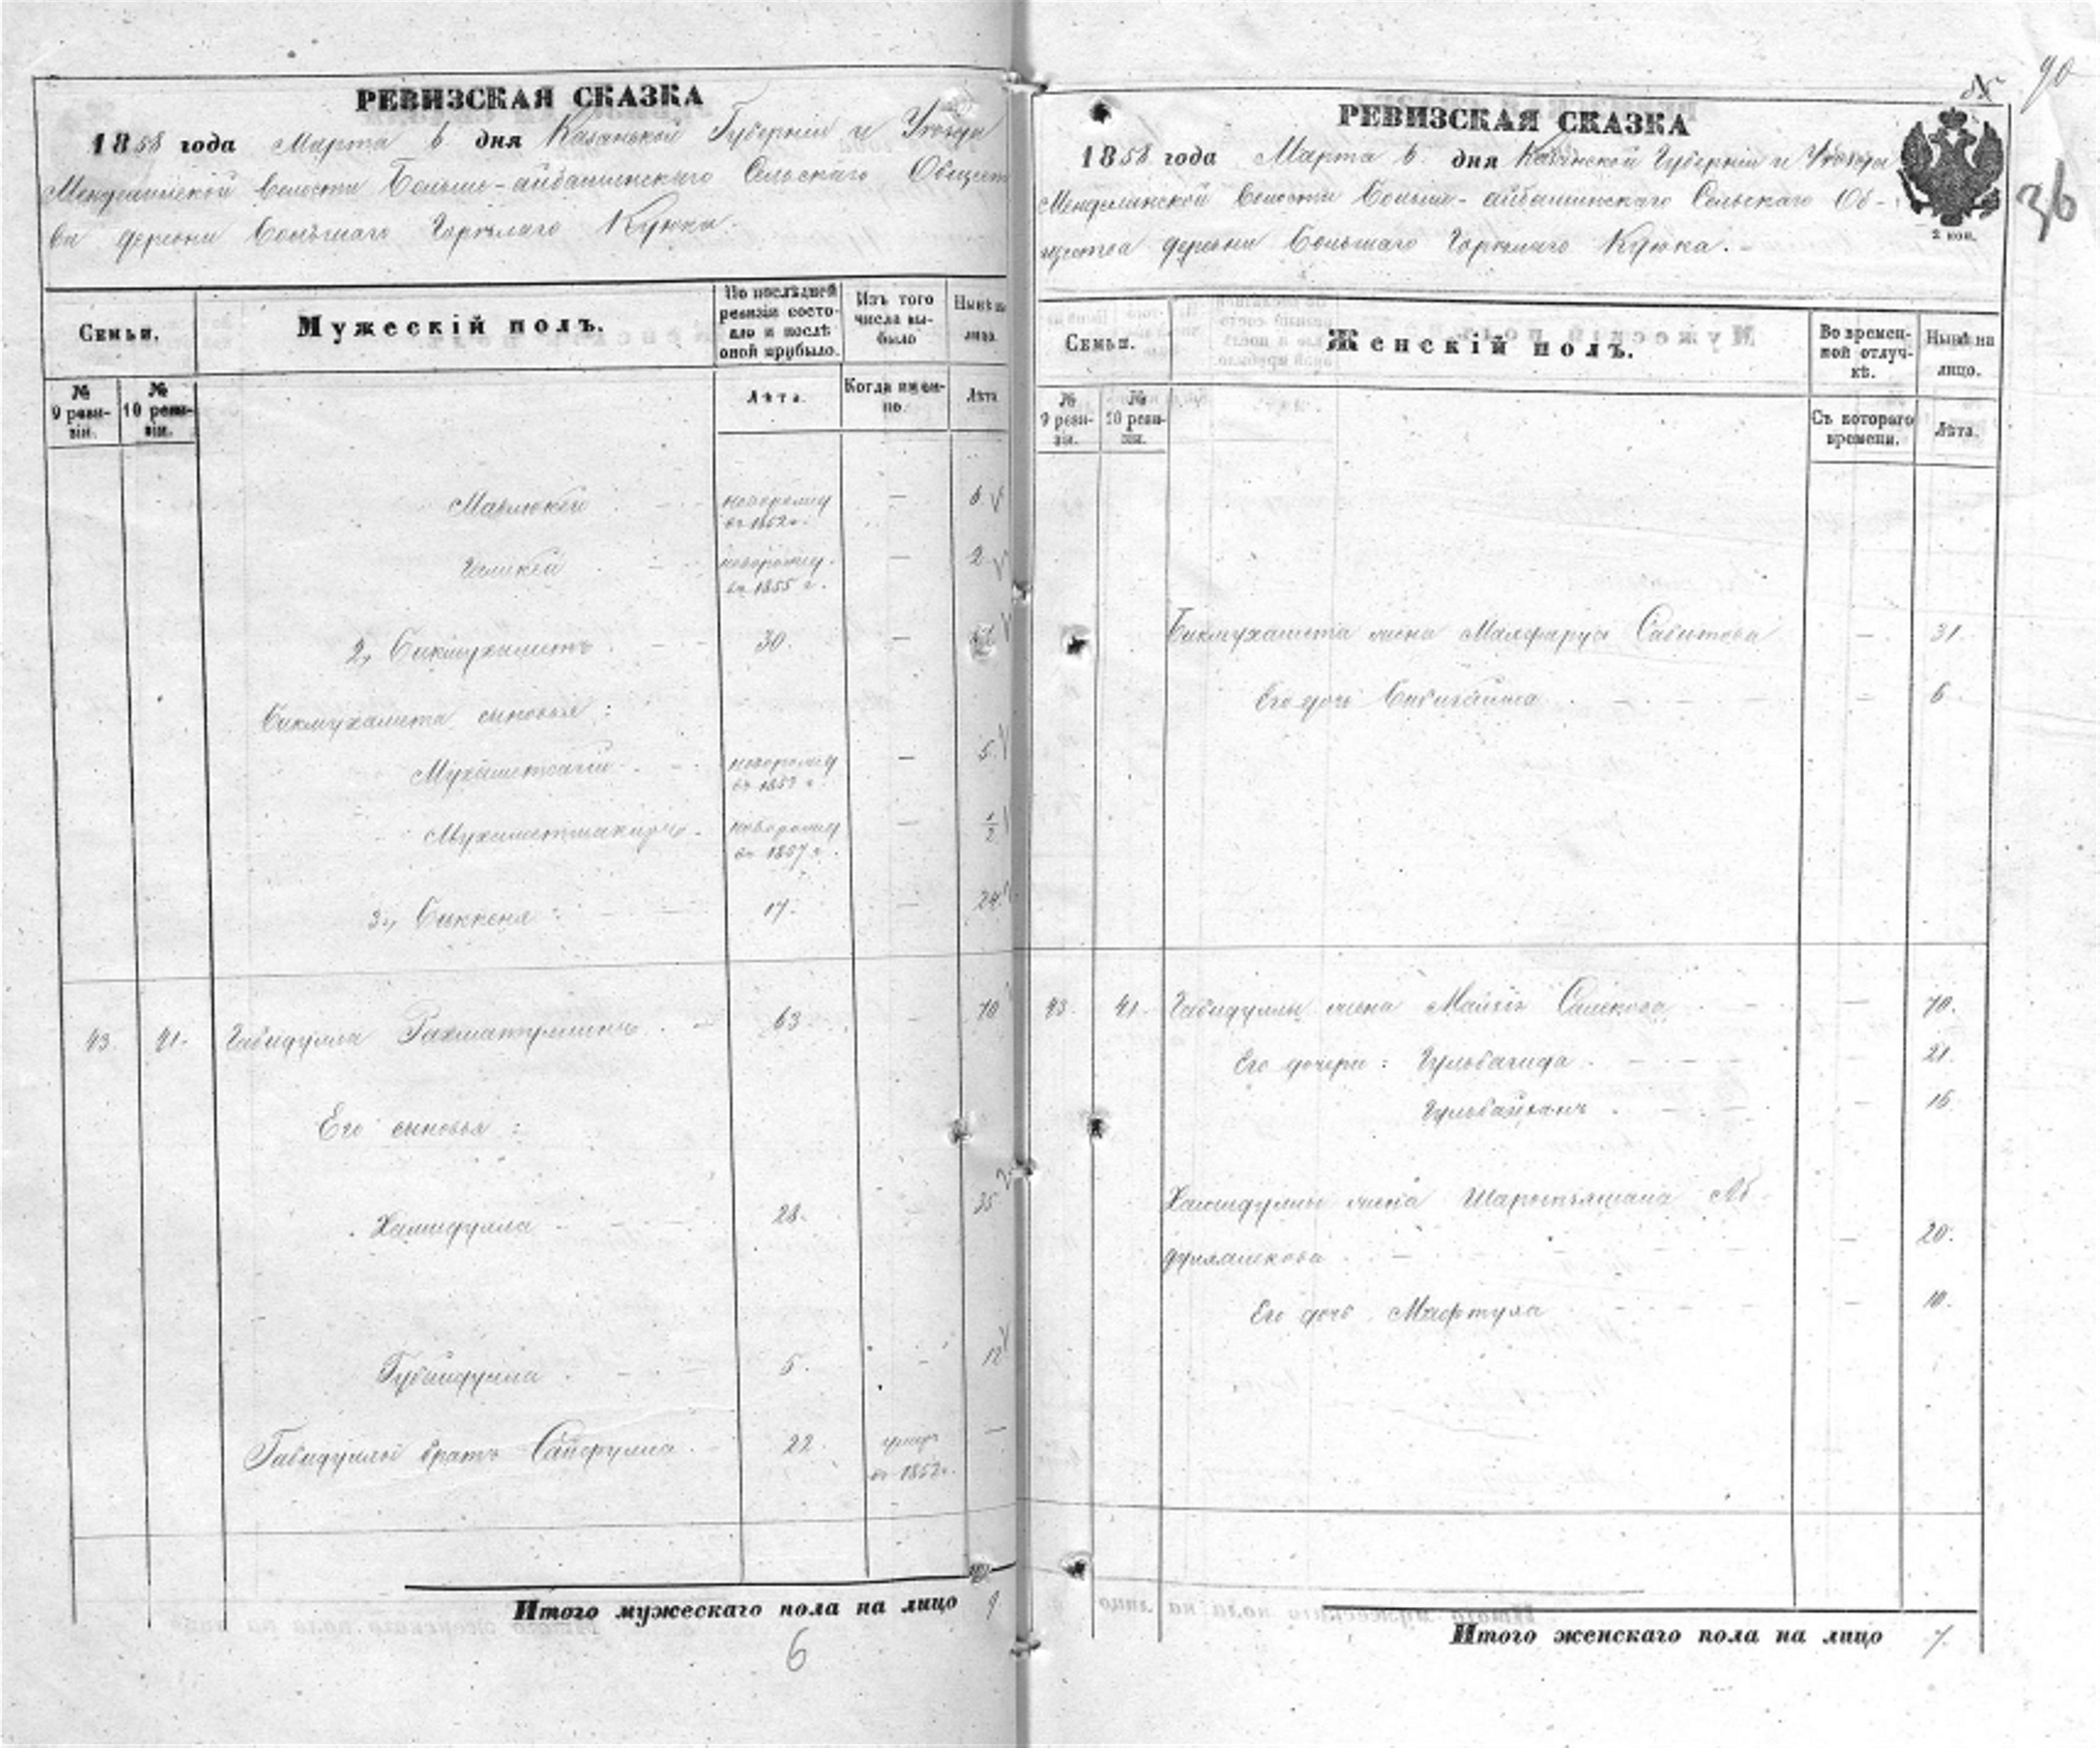 РЕВИЗСКАЯ СКАЗКА
1858 года Марта 6 дня Казанской Губернiи и Уѣзда
волости Больше-айбашинскаго Сельскаго Общест
ва деревни Большаго Горѣлаго Кужка.
Семьи.
Мужескiй полъ.
По послѣдней ревизiи состояло и послѣ оной прибыло.
Изъ того числа выбыло
Нынѣ на лицо.
№ 9 ревизiи.
№ 10 ревизiи.
Лѣта.
Когда именно.
Лѣта
Мавлюкей новорожд въ 1852 г. — 6
новорожд. въ 1855 г. — 2
2, Бикмухаметъ 30. —
Бикмухамета сыновья:
новорожд въ 1853 г. — 5
Мухаметшакиръ новорожд въ 1857 г. — 1/2
3, 17. — 24
43. 41. Габидулла Рахматуллинъ 63 — 70
Его сыновья:
Хамидулла 28. 35
Губайдулла 5. — 12
Габидуллы братъ Сайфулла 22. умеръ въ 1852 г. —
Итого мужескаго пола на лицо 9
6
90
36
РЕВИЗСКАЯ СКАЗКА
2 коп.
1858 года Марта 6 дня Казанской Губернiи и Уѣзда
волости Больше-айбашинскаго Сельскаго Об-
щества деревни Большаго Горѣлаго Кужка.
Семьи.
Женскiй полъ.
Во временной отлучкѣ.
Нынѣ на лицо.
№ 9 ревизiи.
№ 10 ревизiи.
Съ котораго времени.
Лѣта.
Бикмухамета жена Сабитова — 31.
Его дочь Бибигайша — 6
43. 41. Габидуллы жена Салихова — 70.
Его дочери: Гульбагида — 21.
— 16
Хамидуллы жена Аб
— 20.
Его дочь Мафтуха — 10.
Итого женскаго пола на лицо 7.